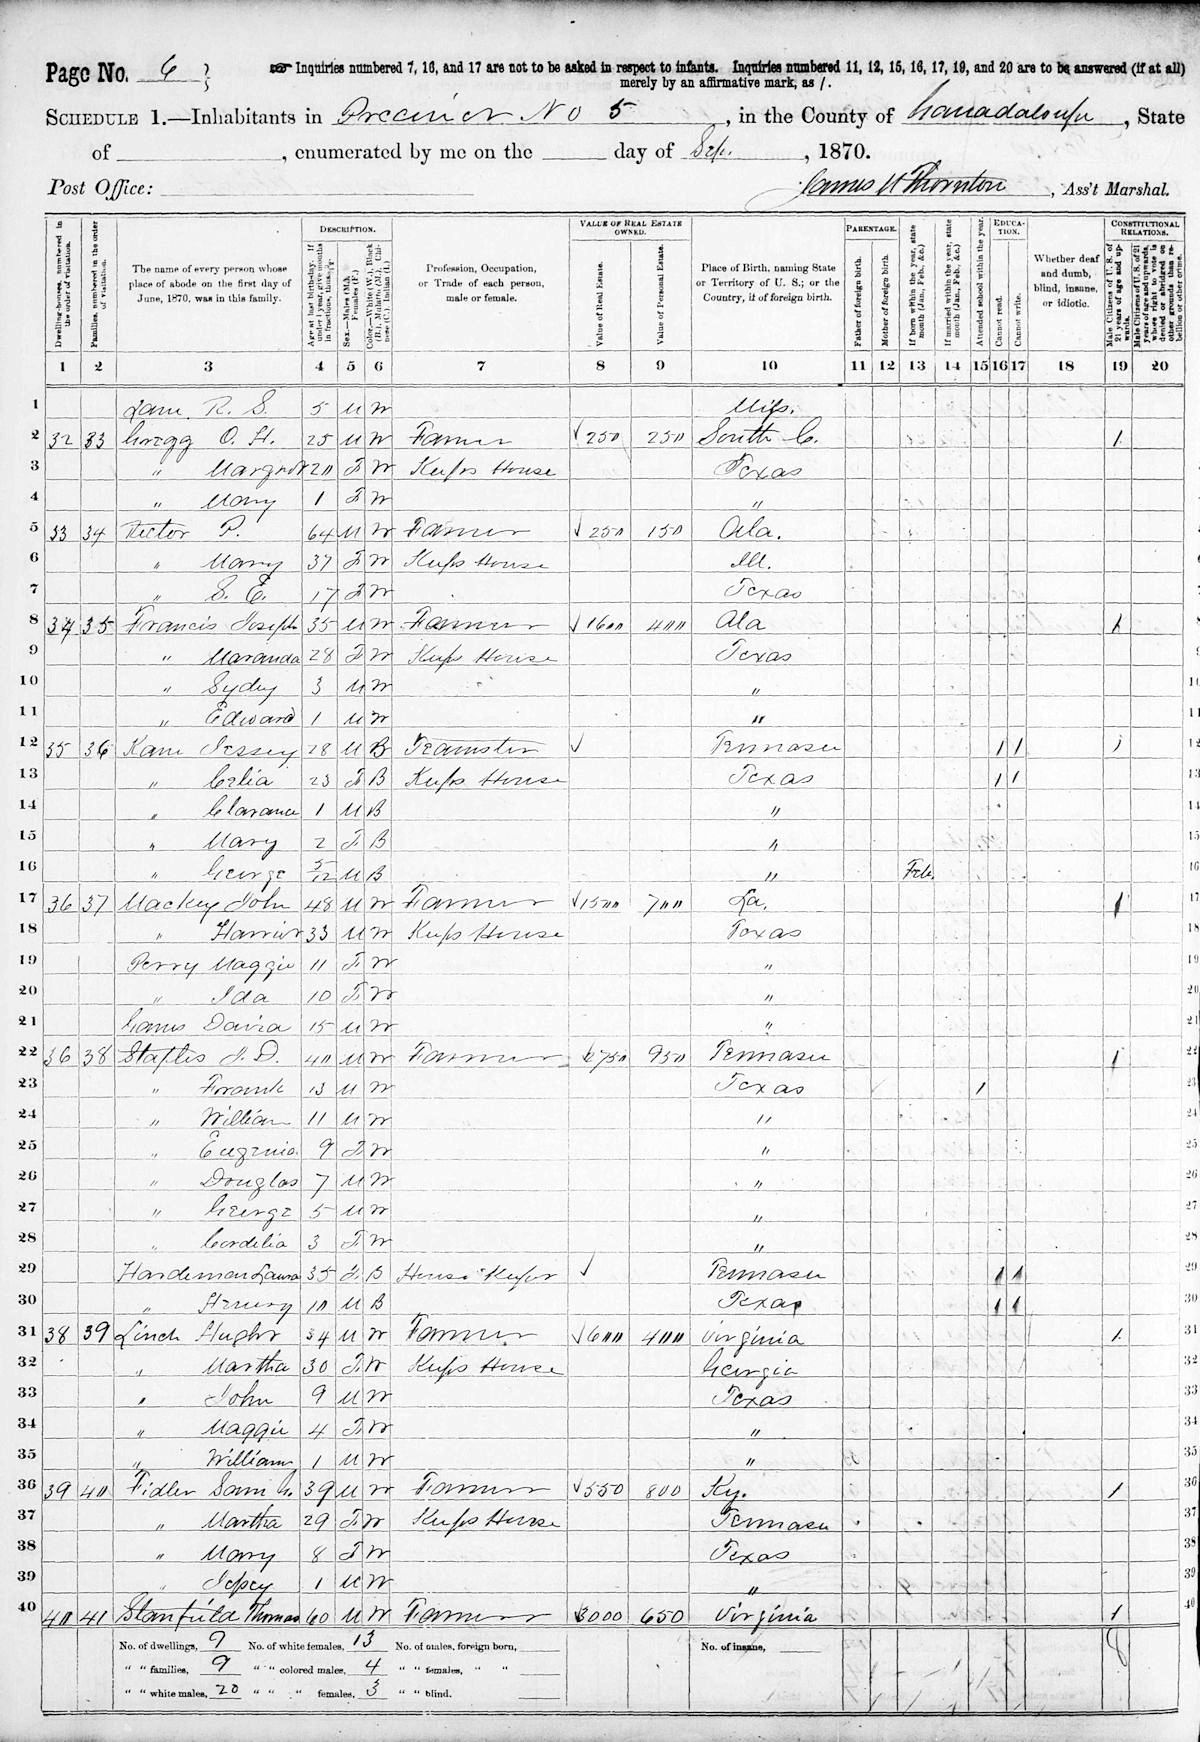 Page No. 6
☞ Inquiries numbered 7, 16, and 17 are not to be asked in respect to infants. Inquiries numbered 11, 12, 15, 16, 17, 19, and 20 are to be answered (if at all)
merely by an affirmative mark, as /.
SCHEDULE 1.—Inhabitants in Precinct No 5, in the County of Guadaloupe, State
of , enumerated by me on the day of Sep., 1870.
Post Office:
James Thornton, Ass't Marshal.
DESCRIPTION. VALUE OF REAL ESTATE OWNED. PARENTAGE. EDUCATION. CONSTITUTIONAL RELATIONS.
Dwelling-houses, numbered in the order of visitation. Families, numbered in the order of visitation. The name of every person whose place of abode on the first day of June, 1870, was in this family. Age at last birth-day. If under 1 year, give months in fractions, thus, Sex.—Males (M.), Females (F.) Color.—White (W.), Black (B.), Mulatto (M.), Chinese (C.), Indian (I.) Profession, Occupation, or Trade of each person, male or female. Value of Real Estate. Value of Personal Estate. Place of Birth, naming State or Territory of U. S.; or the Country, if of foreign birth. Father of foreign birth. Mother of foreign birth. If born within the year, state month (Jan., Feb., &c.) If married within the year, state month (Jan., Feb., &c.) Attended school within the year. Cannot read. Cannot write. Whether deaf and dumb, blind, insane, or idiotic. Male Citizens of U. S. of 21 years of age and upwards. Male Citizens of U.S. of 21 years of age and upwards, whose right to vote is denied or abridged on other grounds than rebellion or other crime.
1 2 3 4 5 6 7 8 9 10 11 12 13 14 15 16 17 18 19 20
1 R. S. 5 M W Miss. 1
2 32 33 Gregg O. H. 25 M W Farmer √ 250 250 South C. / 2
3 " Margret 20 F W Keeps House Texas 3
4 " Mary 1 F W " 4
5 33 34 Rector P. 64 M W Farmer √ 250 150 Ala. 5
6 " Mary 37 F W Keeps House Ill. 6
7 " S. E. 17 F W Texas 7
8 34 35 Francis Joseph 35 M W Farmer √ 1600 400 Ala / 8
9 " Maranda 28 F W Keeps House Texas 9
10 " Sydny 3 M W " 10
11 " Edward 1 M W " 11
12 35 36 Kane Jessey 28 M B Teamster √ Tennasee / / / 12
13 " Celia 23 F B Keeps House Texas / / 13
14 " Clarance 1 M B " 14
15 " Mary 2 F B " 15
16 " George 5/12 M B " Feb. 16
17 36 37 Mackey John 48 M W Farmer √ 1500 700 La. / 17
18 " Harriet 33 M W Keeps House Texas 18
19 Perry Maggie 11 F W " 19
20 " Ida 10 F W " 20
21 David 15 M W " 21
22 36 38 Staples J. D. 40 M W Farmer √ 2750 950 Tennasee / 22
23 " Frank 13 M W Texas / 23
24 " William 11 M W " 24
25 " Eugenia 9 F W " 25
26 " Douglas 7 M W " 26
27 " George 5 M W " 27
28 " Cordelia 3 F W " 28
29 Hardeman Laura 35 F B House Keeper √ Tennasee / / 29
30 " Henery 10 M B Texas / / 30
31 38 39 Linch Hugh 34 M W Farmer √ 600 400 Virginia / 31
32 " Martha 30 F W Keeps House Georgia 32
33 " John 9 M W Texas 33
34 " Maggie 4 F W " 34
35 " William 1 M W " 35
36 39 40 Fidler Saml 39 M W Farmer √ 550 800 Ky. / 36
37 " Martha 29 F W Keeps House Tennasee 37
38 " Mary 8 F W Texas 38
39 " 1 M W " 39
40 40 41 Stanfield Thomas 60 M W Farmer 3000 650 Virginia / 40
No. of dwellings, 9 No. of white females, 13 No. of males, foreign born, No. of insane, 8
" " families, 9 " " colored males, 4 " " females, " "
" " white males, 20 " " " females, 3 " " blind.